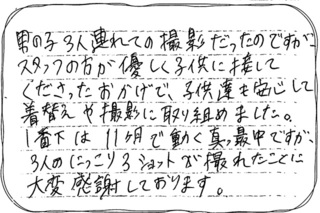 男の子3人連れての撮影だったのですが、
スタッフの方が優しく子供に接して
くださったおかげで、子供達も安心して
着替えや撮影に取り組めました。
1番下は11ヶ月で動く真っ最中ですが、
3人のにっこり3ショットが撮れたことに
大変感謝しております。